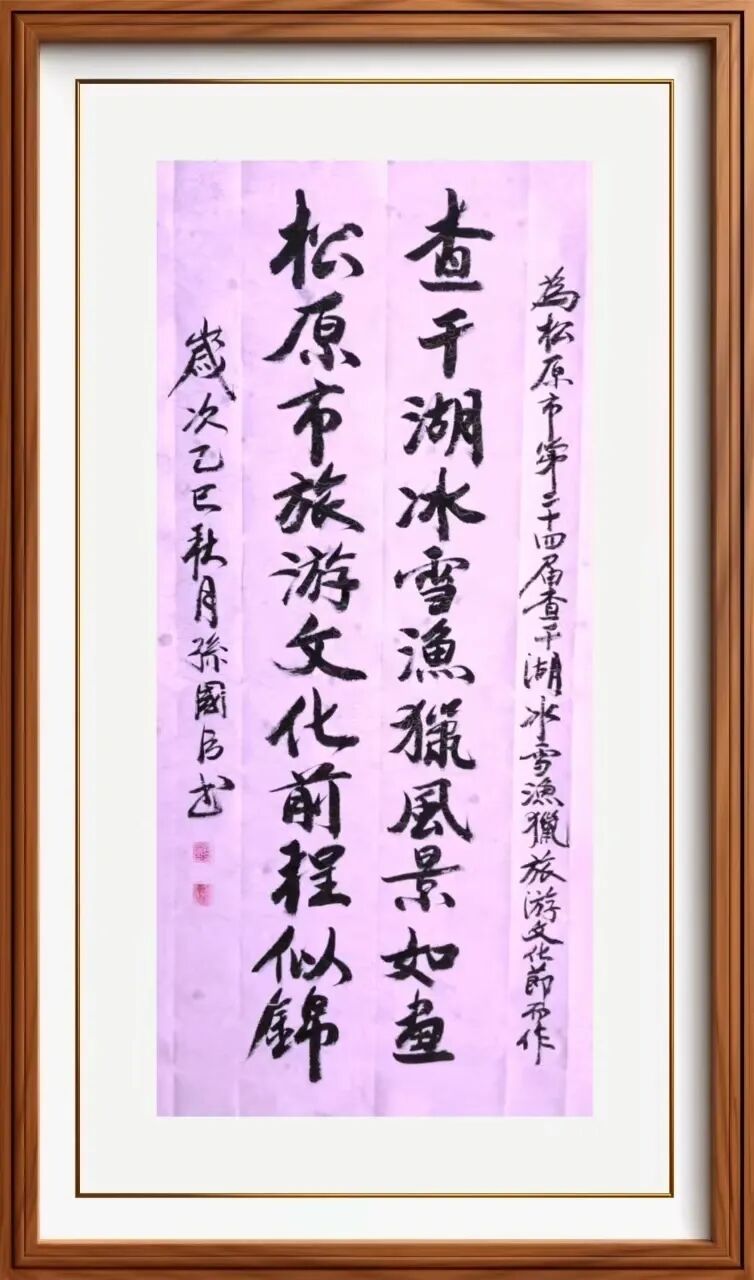 為松原市第二十四届查干湖冰雪漁獵旅游文化節而作
查干湖冰雪漁獵風景如畫
松原市旅游文化前程似錦
歲次乙巳秋月孫國后书